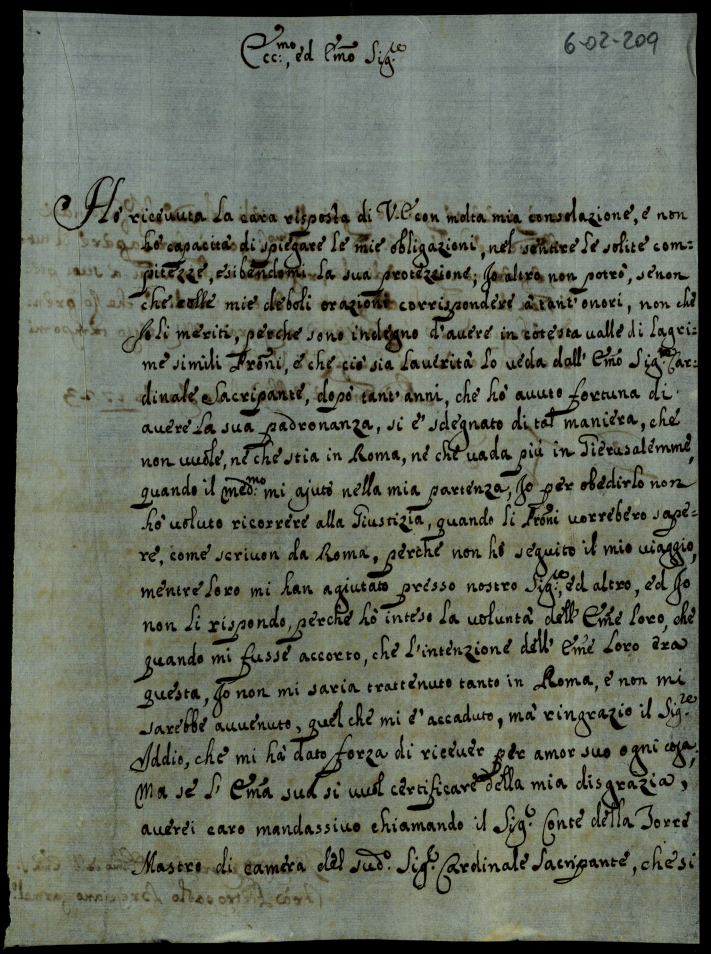 6-02-209
Ecc:mo, ed Emo Sig:re
Hò ricevuta la cara risposta di V.E con molta mia consolazione, e non
hò capacità di spiegare le mie obligazioni, nel sentire le solite com=
pitezze, esibendomi la sua protezzione; Io altro non potrò, senon
che colle mie deboli orazioni corrispondere à tant'onori, non che
Io li meriti, perche sono indegno d'avere in cotesta valle di lagri=
me simili Proni, e che ciò sia la verità lo veda dall' Emo Sig:re Car=
dinale Sacripante, dopò tant'anni, che hò avuto fortuna di
avere la sua padronanza, si e' sdegnato di tal maniera, che
non vuole, ne che stia in Roma, ne che vada più in Gierusalemme,
quando il med:mo mi ajutò nella mia partenza, Io per obedirlo non
hò voluto ricorrere alla Giustizia, quando li Proni vorrebero sape=
re, come scrivon da Roma, perche non hò seguito il mio viaggio,
mentre loro mi han agiutato presso nostro Sig:re, ed altro, ed Io
non li rispondo, perche hò inteso la voluntà dell' Eme loro, che
quando mi fusse accorto, che l'intenzione dell' Eme loro era
questa, Io non mi saria trattenuto tanto in Roma, e non mi
sarebbe avvenuto, quel che mi e' accaduto, mà ringrazio il Sig:re
Iddio, che mi hà dato forza di ricever per amor suo ogni cosa,
Ma se l' Ema sua si vuol certificare della mia disgrazia,
averei caro mandassivo chiamando il Sig:r Conte della Torre
Mastro di camera del sud:o Sig:r Cardinale Sacripante, che si